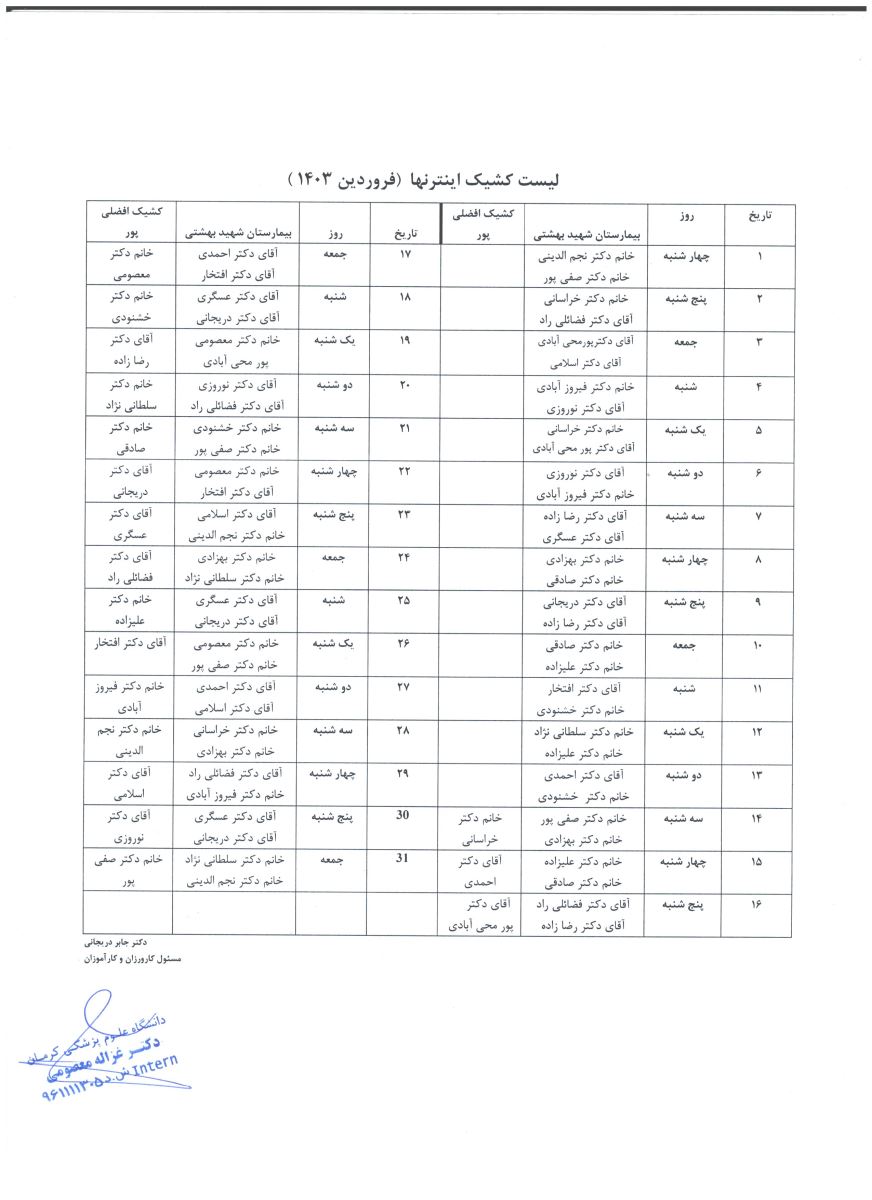 لیست کشیک اینترنها (فروردین ۱۴۰۳)
تاریخ روز بیمارستان شهید بهشتی کشیک افضلی پور تاریخ روز بیمارستان شهید بهشتی کشیک افضلی پور
۱ چهار شنبه خانم دکتر نجم الدینی ۱۷ جمعه آقای دکتر احمدی خانم دکتر
خانم دکتر صفی پور آقای دکتر افتخار معصومی
۲ پنج شنبه خانم دکتر خراسانی ۱۸ شنبه آقای دکتر عسگری خانم دکتر
آقای دکتر فضائلی راد آقای دکتر دریجانی خشنودی
۳ جمعه آقای دکترپورمحی آبادی ۱۹ یک شنبه خانم دکتر معصومی آقای دکتر
آقای دکتر اسلامی پور محی آبادی رضا زاده
۴ شنبه خانم دکتر فیروز آبادی ۲۰ دو شنبه آقای دکتر نوروزی خانم دکتر
آقای دکتر نوروزی آقای دکتر فضائلی راد سلطانی نژاد
۵ یک شنبه خانم دکتر خراسانی ۲۱ سه شنبه خانم دکتر خشنودی خانم دکتر
آقای دکتر پور محی آبادی خانم دکتر صفی پور صادقی
۶ دو شنبه آقای دکتر نوروزی ۲۲ چهار شنبه خانم دکتر معصومی آقای دکتر
خانم دکتر فیروز آبادی آقای دکتر افتخار دریجانی
۷ سه شنبه آقای دکتر رضا زاده ۲۳ پنج شنبه آقای دکتر اسلامی آقای دکتر
آقای دکتر عسگری خانم دکتر نجم الدینی عسگری
۸ چهار شنبه خانم دکتر بهزادی ۲۴ جمعه خانم دکتر بهزادی آقای دکتر
خانم دکتر صادقی خانم دکتر سلطانی نژاد فضائلی راد
۹ پنج شنبه آقای دکتر دریجانی ۲۵ شنبه آقای دکتر عسگری خانم دکتر
آقای دکتر رضا زاده آقای دکتر دریجانی علیزاده
۱۰ جمعه خانم دکتر صادقی ۲۶ یک شنبه خانم دکتر معصومی آقای دکتر افتخار
خانم دکتر علیزاده خانم دکتر صفی پور
۱۱ شنبه آقای دکتر افتخار ۲۷ دو شنبه آقای دکتر احمدی خانم دکتر فیروز
خانم دکتر خشنودی آقای دکتر اسلامی آبادی
۱۲ یک شنبه خانم دکتر سلطانی نژاد ۲۸ سه شنبه خانم دکتر خراسانی خانم دکتر نجم
خانم دکتر علیزاده خانم دکتر بهزادی الدینی
۱۳ دو شنبه آقای دکتر احمدی ۲۹ چهار شنبه آقای دکتر فضائلی راد آقای دکتر
خانم دکتر خشنودی خانم دکتر فیروز آبادی اسلامی
۱۴ سه شنبه خانم دکتر صفی پور خانم دکتر 30 پنج شنبه آقای دکتر عسگری آقای دکتر
خانم دکتر بهزادی خراسانی آقای دکتر دریجانی نوروزی
۱۵ چهار شنبه خانم دکتر علیزاده آقای دکتر 31 جمعه خانم دکتر سلطانی نژاد خانم دکتر صفی
خانم دکتر صادقی احمدی خانم دکتر نجم الدینی پور
۱۶ پنج شنبه آقای دکتر فضائلی راد آقای دکتر
آقای دکتر رضا زاده پور محی آبادی
دکتر جابر دریجانی
مسئول کارورزان و کارآموزان
دانشگاه علوم پزشکی کرمان
دکتر غزاله معصومی
Intern ش.د ۹۶۱۱۱۱۳۰۵